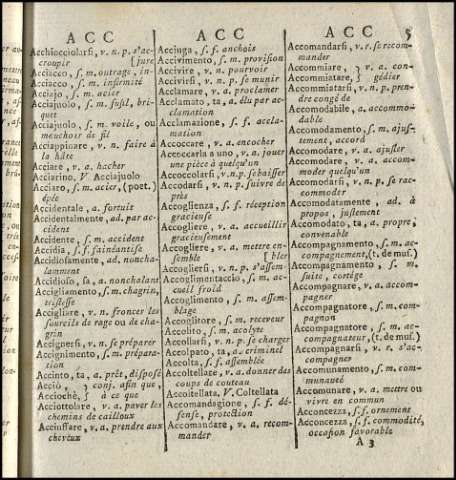 ACC
Acchiocciolarsi, v. n. p. s'ac-
croupir [jure
Acciacco, s. m. outrage, in-
Acciacco, s. m. infirmité
Acciajo, s. m. acier
Acciajuolo, s. m. fusil, bri-
quet
Acciajuolo, s. m. voile, ou
mouchoir de fil
Acciappinare, v. n. faire à
la hâte
Acciare, v. a. hacher
Acciarino, V. Acciajuolo
Acciaro, s. m. acier, (poet.)
épée
Accidentale, a. fortuit
Accidentalmente, ad. par ac-
cident
Accidente, s. m. accident
Accidia, s. f. fainéantise
Accidiosamente, ad. noncha-
lamment
Accidioso, sa, a. nonchalant
Accigliamento, s. m. chagrin,
tristesse
Accigliare, v. n. froncer les
sourcils de rage ou de cha-
grin
Accignersi, v. n. se préparer
Accignimento, s. m. prépara-
tion
Accinto, ta, a. prêt, disposé
Acciò, } conj. afin que,
Acciochè, } à ce que
Acciottolare, v. a. paver les
chemins de cailloux
Acciuffare, v. a. prendre aux
cheveux
ACC
Acciuga, s. f. anchois
Accivimento, s. m. provision
Accivire, v. n. pourvoir
Accivirsi, v. n. p. se munir
Acclamare, v. a. proclamer
Acclamato, ta, a. élu par ac-
clamation
Acclamazione, s. f. accla-
mation
Accoccare, v. a. encocher
Accoccarla a uno, v. a. jouer
une pièce à quelqu'un
Accoccolarsi, v. n. p. se baisser
Accodarsi, v. n. p. suivre de
près
Accoglienza, s. f. réception
gracieuse
Accogliere, v. a. accueillir
gracieusement
Accogliere, v. a. mettre en-
semble [bler
Accogliersi, v. n. p. s'assem-
Accoglimentaccio, s. m. ac-
cueil froid
Accoglimento, s. m. assem-
blage
Accoglitore, s. m. receveur
Accolito, s. m. acolyte
Accollarsi, v. n. p. se charger
Accolpato, ta, a. criminel
Accolta, s. f. assemblée
Accoltellare, v. a. donner des
coups de couteau
Accoltellata, V. Coltellata
Accomandagione, s. f. dé-
fense, protection
Accomandare, v. a. recom-
mander
ACC 5
Accomandarsi, v. r. se recom-
mander
Accommiare, } v. a. con-
Accommiatare, } gédier
Accommiatarsi, v. n. p. pren-
dre congé de
Accomodabile, a. accommo-
dable
Accomodamento, s. m. ajus-
tement, accord
Accomodare, v. a. ajuster
Accomodare, v. a. accom-
moder quelqu'un
Accomodarsi, v. n. p. se rac-
commoder
Accomodatamente, ad. à
propos, justement
Accomodato, ta, a. propre,
convenable
Accompagnamento, s. m. ac-
compagnement, (t. de mus.)
Accompagnamento, s. m.
suite, cortége
Accompagnare, v. a. accom-
pagner
Accompagnatore, s. m. com-
pagnon
Accompagnatore, s. m. ac-
compagnateur, (t. de mus.)
Accompagnarsi, v. r. s'ac-
compagner
Accomunamento, s. m. com-
munauté
Accomunare, v. a. mettre ou
vivre en commun
Acconcezza, s. f. ornement
Acconcezza, s. f. commodité,
occasion favorable
A 3